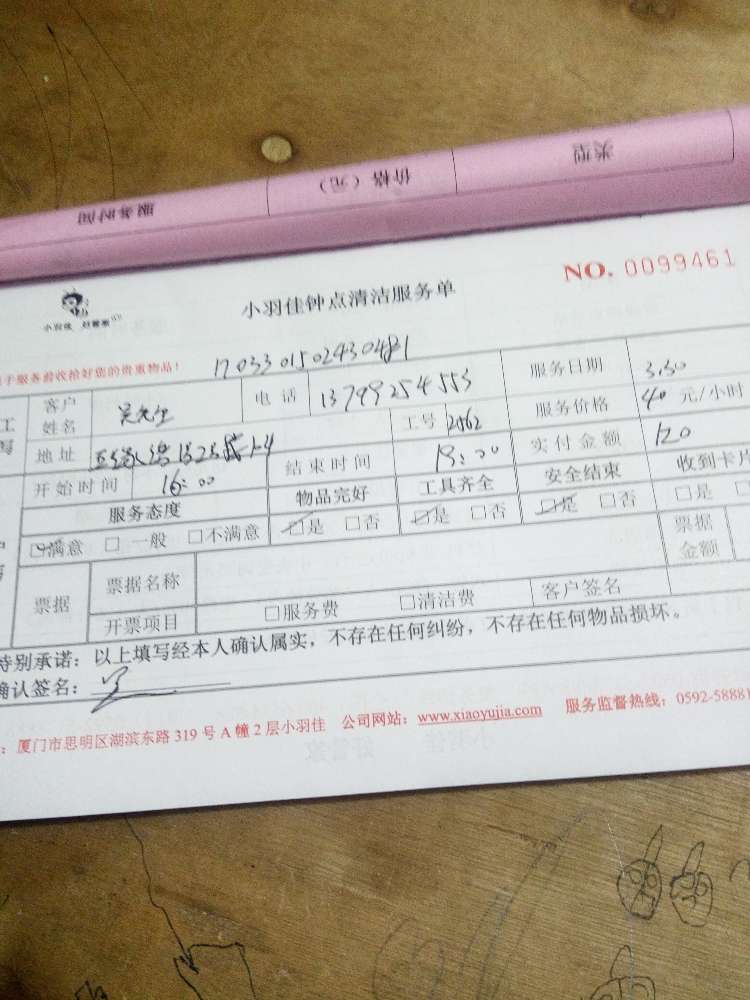 类型
价格（元）
服务时间
小羽佳钟点清洁服务单
NO. 0099461
小羽佳 好管家
于服务前收拾好您的贵重物品！
客户姓名 吴先生 电话 13799254553 服务日期 3.30
地址 工号 2062 服务价格 40 元/小时
开始时间 16:00 结束时间 19:00 实付金额 120
服务态度 物品完好 工具齐全 安全结束 收到卡片
☑满意 □一般 □不满意 ☑是 □否 ☑是 □否 ☑是 □否 □是
票据 票据名称 票据金额
开票项目 □服务费 □清洁费 客户签名
特别承诺：以上填写经本人确认属实，不存在任何纠纷，不存在任何物品损坏。
确认签名：
：厦门市思明区湖滨东路 319 号 A 幢 2 层小羽佳 公司网站：www.xiaoyujia.com 服务监督热线：0592-58881